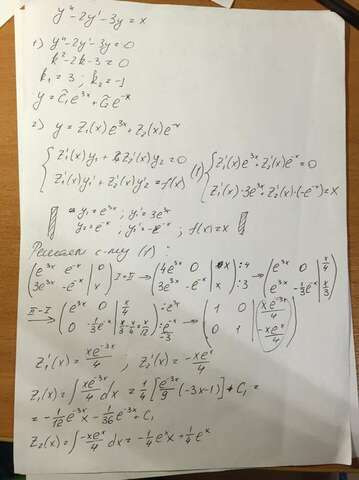 y'' - 2y' - 3y = x
1) y'' - 2y' - 3y = 0
k² - 2k - 3 = 0
k₁ = 3 ; k₂ = -1
y = C̃₁e³ˣ + C̃₂e⁻ˣ
2) y = Z₁(x)e³ˣ + Z₂(x)e⁻ˣ
{ Z₁'(x)y₁ + Z₂'(x)y₂ = 0 (1) { Z₁'(x)e³ˣ + Z₂'(x)e⁻ˣ = 0
{ Z₁'(x)y₁' + Z₂'(x)y₂' = f(x) { Z₁'(x)·3e³ˣ + Z₂'(x)·(-e⁻ˣ) = x
y₁ = e³ˣ ; y₁' = 3e³ˣ
y₂ = e⁻ˣ ; y₂' = -e⁻ˣ ; f(x) = x
Решаем с-му (1) :
(e³ˣ e⁻ˣ | 0) I+II → (4e³ˣ 0 | x) :4 → (e³ˣ 0 | x/4)
(3e³ˣ -e⁻ˣ | x) (3e³ˣ -e⁻ˣ | x) :3 (e³ˣ -1/3e⁻ˣ | x/3)
II-I → (e³ˣ 0 | x/4) :e³ˣ → (1 0 | xe⁻³ˣ/4)
(0 -1/3e⁻ˣ | x/3 - x/4 = x/12) : e⁻ˣ/-3 (0 1 | -xeˣ/4)
Z₁'(x) = xe⁻³ˣ/4 ; Z₂'(x) = -xeˣ/4
Z₁(x) = ∫ xe⁻³ˣ/4 dx = 1/4 [e⁻³ˣ/9 (-3x-1)] + C₁ =
= -1/12e⁻³ˣ - 1/36e⁻³ˣ + C₁
Z₂(x) = ∫ -xeˣ/4 dx = -1/4eˣx + 1/4eˣ